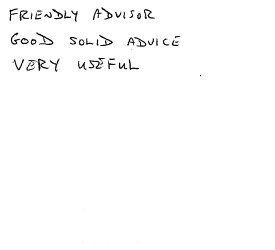 FRIENDLY ADVISOR
GOOD SOLID ADVICE
VERY USEFUL